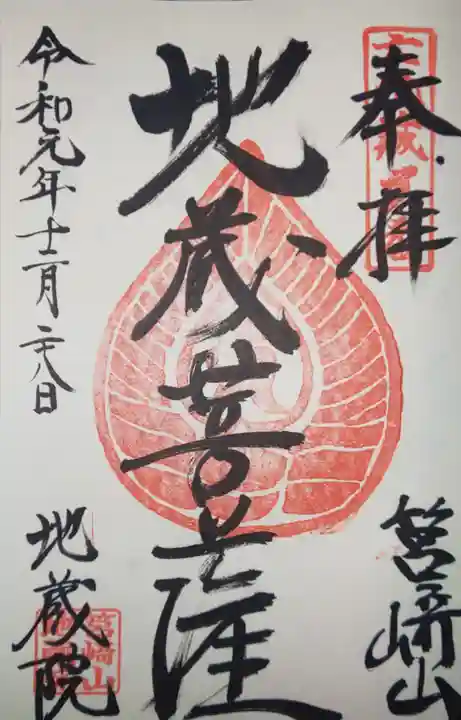 奉拝
筥崎山
地蔵菩薩
令和元年十二月二十八日
地蔵院